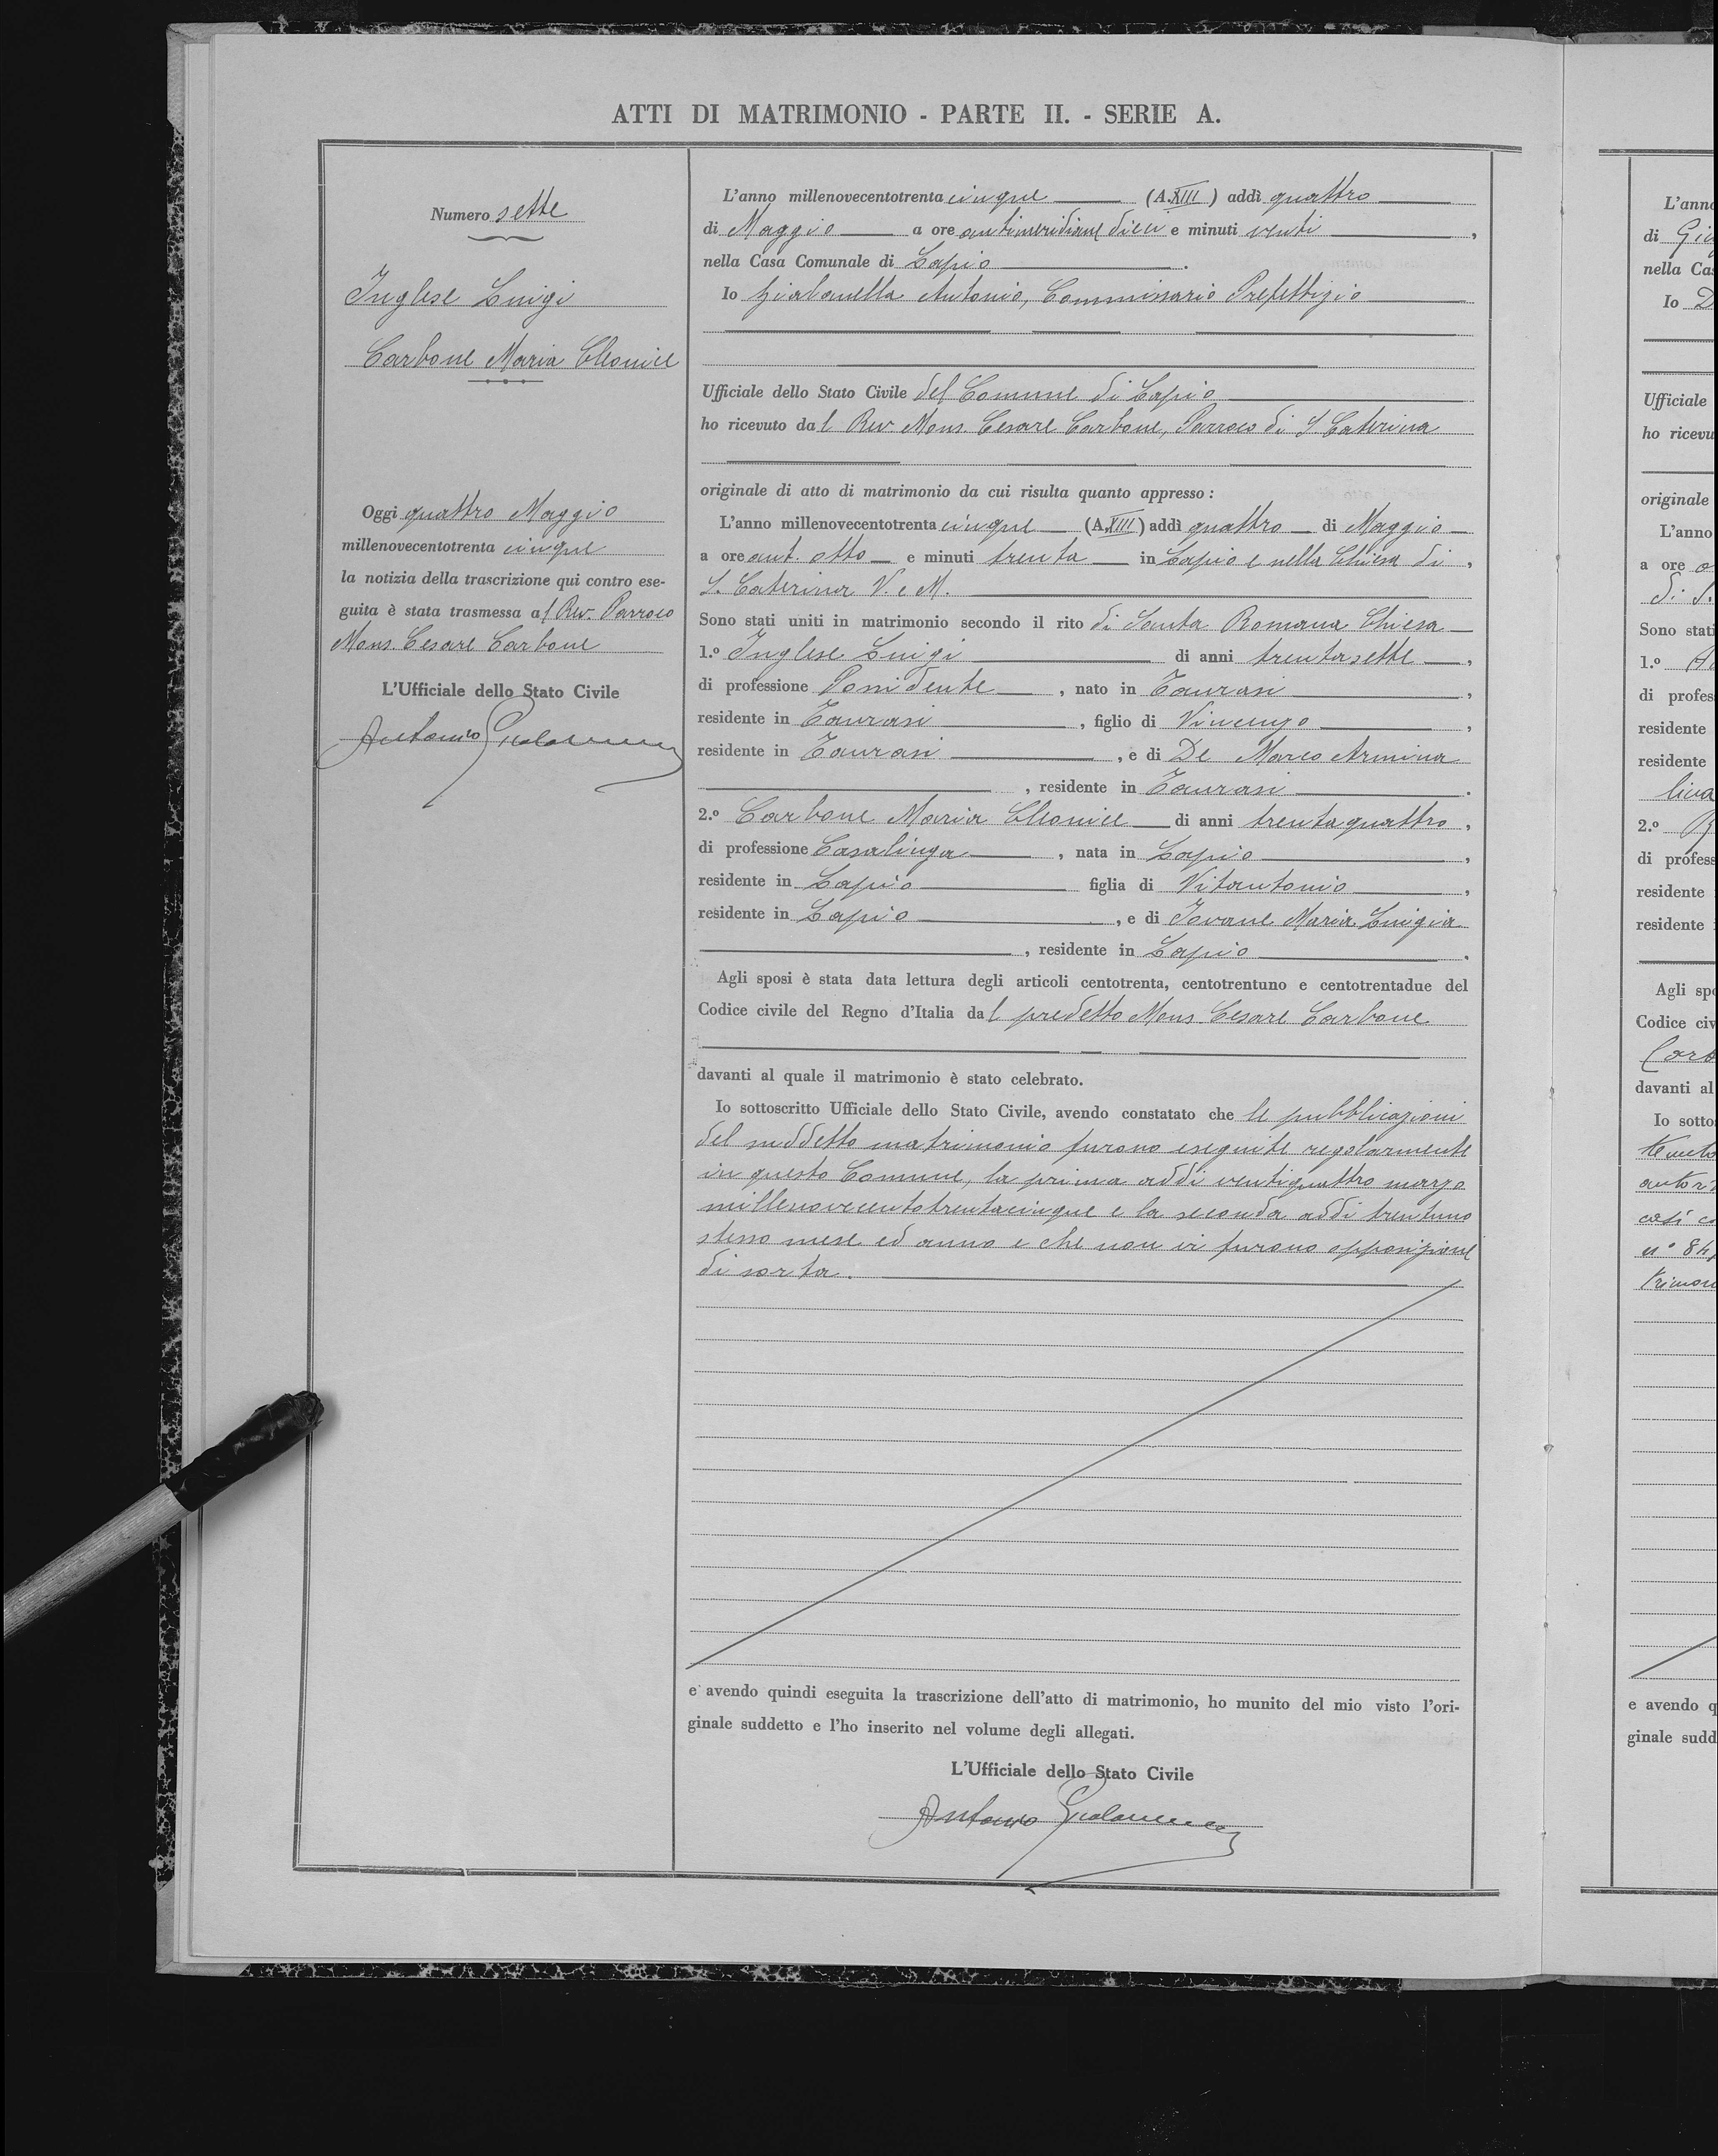 ATTI DI MATRIMONIO - PARTE II. - SERIE A.
Numero sette
Inglese Luigi
Carbone Maria Cleonice
Oggi quattro Maggio
millenovecentotrenta cinque
la notizia della trascrizione qui contro ese-
guita è stata trasmessa al Rev. Parroco
Mons. Cesare Carbone
L'Ufficiale dello Stato Civile
Antonio
L'anno millenovecentotrenta cinque (A. XIII) addì quattro
di Maggio a ore antimeridiane dieci e minuti venti,
nella Casa Comunale di Lapio.
Io Gialanella Antonio, Commissario Prefettizio
Ufficiale dello Stato Civile del Comune di Lapio
ho ricevuto dal Rev. Mons. Cesare Carbone, Parroco di S. Caterina
originale di atto di matrimonio da cui risulta quanto appresso:
L'anno millenovecentotrenta cinque (A. XIII) addì quattro di Maggio
a ore ant. otto e minuti trenta in Lapio e nella Chiesa di,
S. Caterina V. e M.
Sono stati uniti in matrimonio secondo il rito di Santa Romana Chiesa
1.º Inglese Luigi di anni trentasette,
di professione Possidente, nato in Taurasi,
residente in Taurasi, figlio di Vincenzo,
residente in Taurasi, e di De Marco Armina
, residente in Taurasi.
2.º Carbone Maria Cleonice di anni trentaquattro,
di professione Casalinga, nata in Lapio,
residente in Lapio figlia di Vitantonio,
residente in Lapio, e di Iovane Maria Luigia
, residente in Lapio.
Agli sposi è stata data lettura degli articoli centotrenta, centotrentuno e centotrentadue del
Codice civile del Regno d'Italia dal predetto Mons. Cesare Carbone
davanti al quale il matrimonio è stato celebrato.
Io sottoscritto Ufficiale dello Stato Civile, avendo constatato che le pubblicazioni
del suddetto matrimonio furono eseguite regolarmente
in questo Comune, la prima addì ventiquattro marzo
millenovecentotrentacinque e la seconda addì trentuno
stesso mese ed anno e che non vi furono opposizione
di sorta.
e avendo quindi eseguita la trascrizione dell'atto di matrimonio, ho munito del mio visto l'ori-
ginale suddetto e l'ho inserito nel volume degli allegati.
L'Ufficiale dello Stato Civile
Antonio
L'anno
di
nella Cas
Io
Ufficiale
ho ricevu
originale
L'anno
a ore
di S.
Sono stati
1.º
di profes
residente
residente
2.º
di profess
residente
residente
Agli spo
Codice civ
davanti al
Io sotto
così
n° 84
e avendo q
ginale sudd